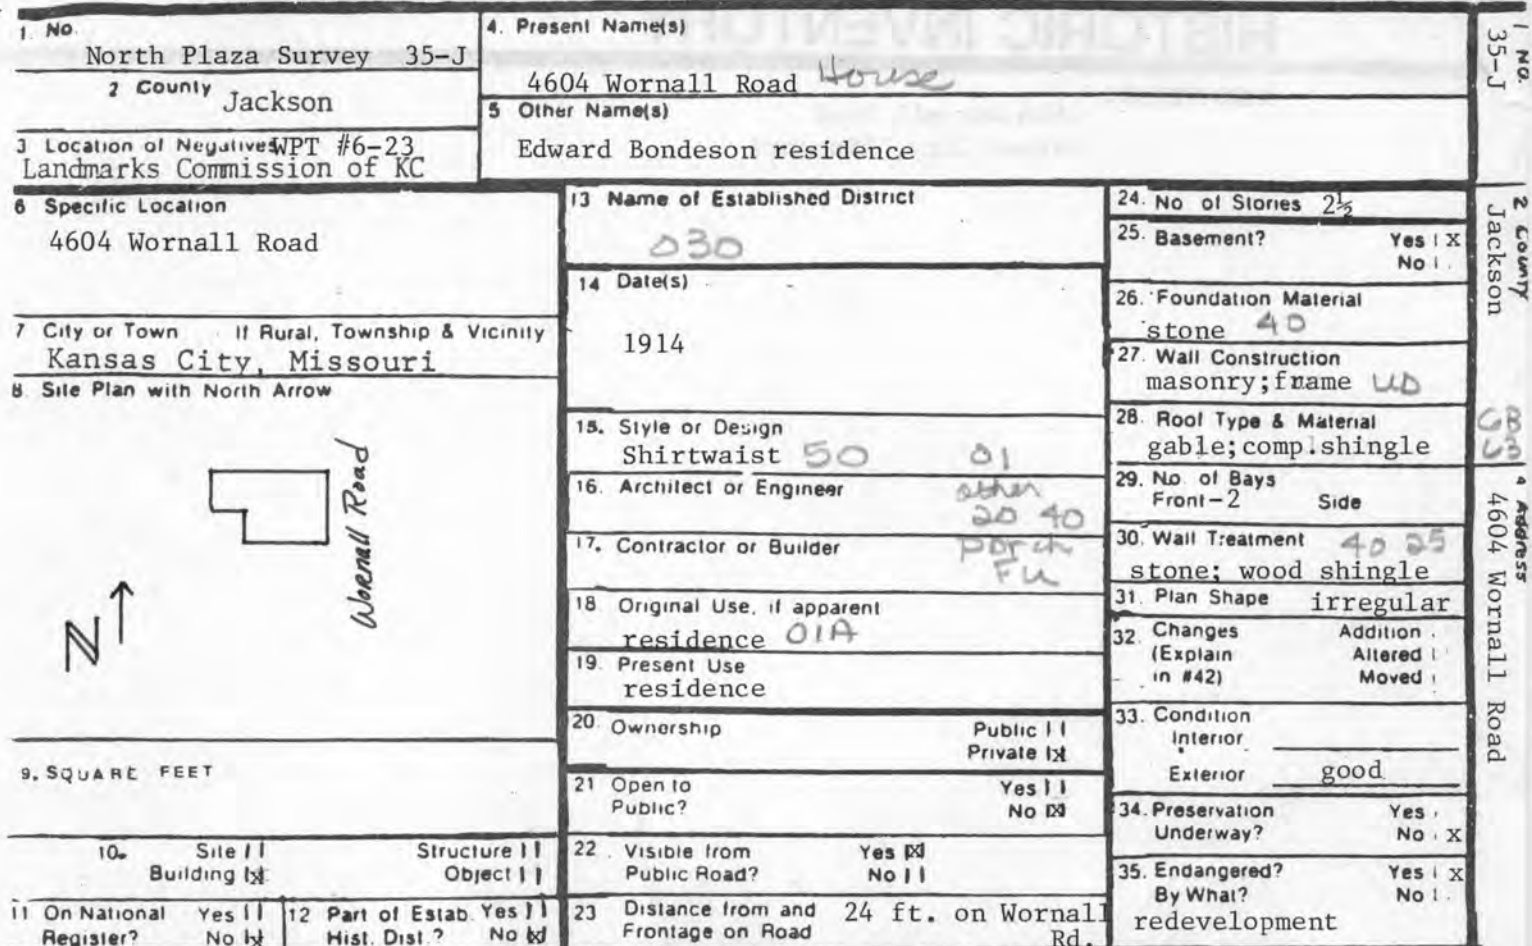 1. No.
North Plaza Survey 35-J
2 County
Jackson
3 Location of Negatives WPT #6-23
Landmarks Commission of KC
4. Present Name(s)
4604 Wornall Road House
5 Other Name(s)
Edward Bondeson residence
6 Specific Location
4604 Wornall Road
7 City or Town If Rural, Township & Vicinity
Kansas City, Missouri
8. Site Plan with North Arrow
Wornall Road
N
9. SQUARE FEET
10. Site Structure
Building X Object
11 On National Register? Yes No X
12 Part of Estab. Hist. Dist.? Yes No X
13 Name of Established District
030
14 Date(s)
1914
15. Style or Design
Shirtwaist 50 01
16. Architect or Engineer
other
20 40
17. Contractor or Builder
porch
FU
18. Original Use, if apparent
residence 01A
19. Present Use
residence
20. Ownership Public
Private X
21 Open to Public? Yes
No X
22 Visible from Public Road? Yes X
No
23 Distance from and Frontage on Road
24 ft. on Wornall Rd.
24. No of Stories 2½
25. Basement? Yes X
No
26. Foundation Material
stone 40
27. Wall Construction
masonry;frame UD
28. Roof Type & Material
gable;comp.shingle
29. No. of Bays
Front-2 Side
30. Wall Treatment 40 25
stone; wood shingle
31. Plan Shape irregular
32. Changes Addition
(Explain Altered
in #42) Moved
33. Condition
Interior
Exterior good
34. Preservation Underway? Yes
No X
35. Endangered? Yes X
By What? No
redevelopment
1 No.
35-J
2 County
Jackson
4 Address
4604 Wornall Road
HISTORIC INVENTORY